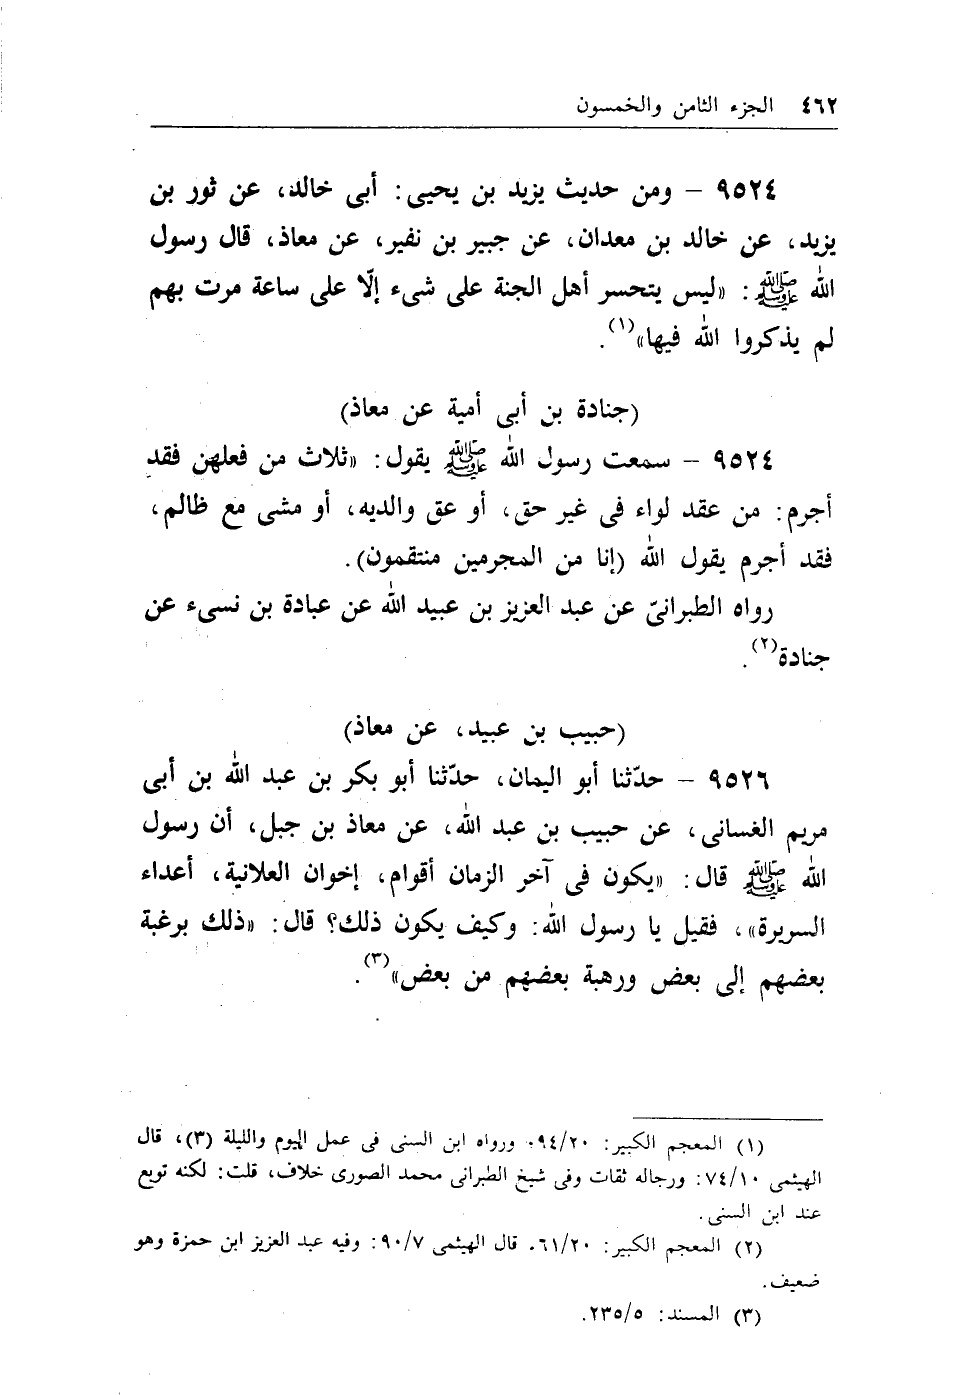 ٤٦٢ الجزء الثامن والخمسون
٩٥٢٤ – ومن حديث يزيد بن يحيى: أبى خالد، عن ثور بن
يزيد، عن خالد بن معدان، عن جبير بن نفير، عن معاذ، قال رسول
الله ﷺ: «ليس يتحسر أهل الجنة على شىء إلّا على ساعة مرت بهم
لم يذكروا الله فيها»(١).
(جنادة بن أبى أمية عن معاذ)
٩٥٢٤ – سمعت رسول الله ﷺ يقول: «ثلاث من فعلهن فقد
أجرم: من عقد لواء فى غير حق، أو عق والديه، أو مشى مع ظالم،
فقد أجرم يقول الله (إنا من المجرمين منتقمون).
رواه الطبرانىّ عن عبد العزيز بن عبيد الله عن عبادة بن نسىء عن
جنادة(٢).
(حبيب بن عبيد، عن معاذ)
٩٥٢٦ – حدّثنا أبو اليمان، حدّثنا أبو بكر بن عبد الله بن أبى
مريم الغسانى، عن حبيب بن عبد الله، عن معاذ بن جبل، أن رسول
الله ﷺ قال: «يكون فى آخر الزمان أقوام، إخوان العلانية، أعداء
السريرة»، فقيل يا رسول الله: وكيف يكون ذلك؟ قال: «ذلك برغبة
بعضهم إلى بعض ورهبة بعضهم من بعض»(٣).
(١) المعجم الكبير: ٩٤/٢٠. ورواه ابن السنى فى عمل اليوم والليلة (٣)، قال
الهيثمى ٧٤/١٠: ورجاله ثقات وفى شيخ الطبرانى محمد الصورى خلاف، قلت: لكنه توبع
عند ابن السنى.
(٢) المعجم الكبير: ٦١/٢٠. قال الهيثمى ٩٠/٧: وفيه عبد العزيز ابن حمزة وهو
ضعيف.
(٣) المسند: ٢٣٥/٥.